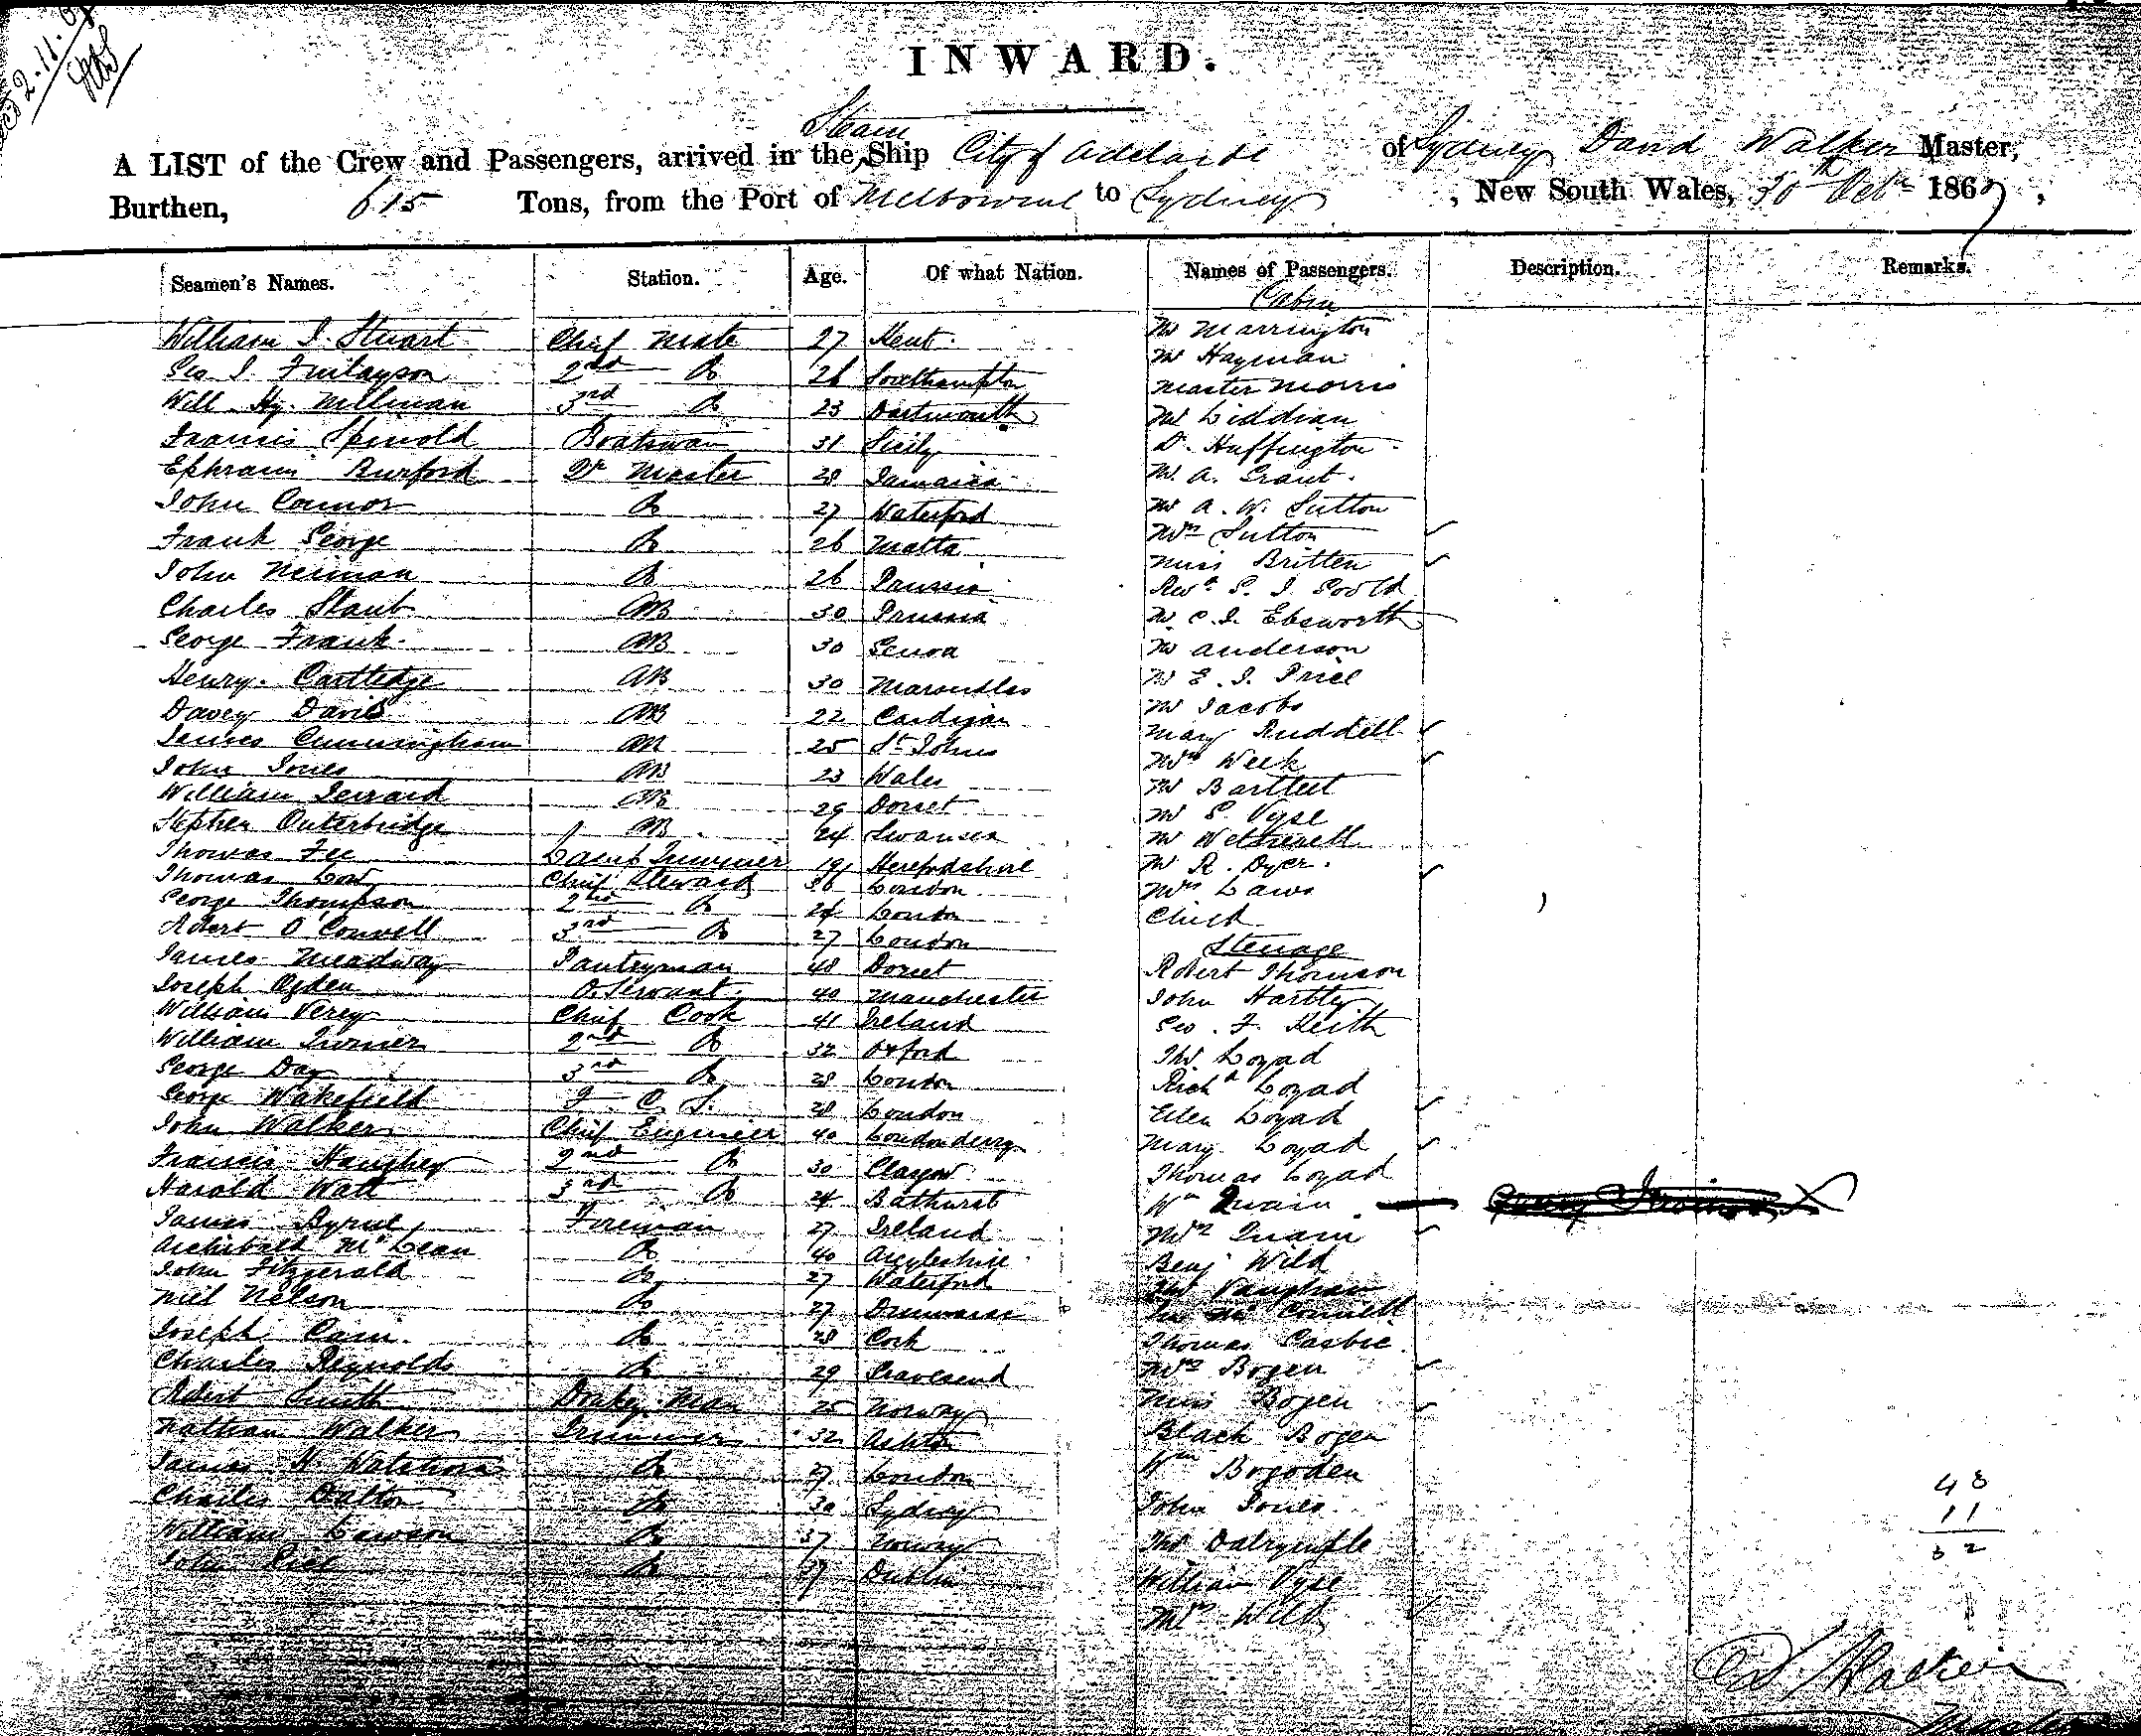 2-11-67
INWARD.
Steam
A LIST of the Crew and Passengers, arrived in the Ship City of Adelaide of Sydney David Walker Master,
Burthen, 615 Tons, from the Port of Melbourne to Sydney, New South Wales, 30th Octr 1867,
Seamen's Names. Station. Age. Of what Nation. Names of Passengers. Description. Remarks.
Cabin
William I. Stuart Chief Mate 27 Kent. Mr Marrington
Geo I. Finlayson 2nd Do 26 Southampton Mr Hayman
Will Hy. Milliman 3rd Do 23 Dartmouth Master Morris
Francis Spinold Boatswain 31 Sicily Mr Liddian
Ephraim Burford Qr Master 28 Jamaica D. Huffington
John Connor Do 27 Waterford Mr A. Grant.
Frank George Do 26 Malta Mr A. W. Sutton
John Neiman Do 26 Prussia Mrs Sutton
Charles Staub AB 30 Prussia Miss Britten
George Frank AB 30 Genoa Revd S. I. Goold
Henry Cartledge AB 30 Marseilles Mr C. I. Ebsworth
Davey David AB 22 Cardigan Mr Anderson
James Cunningham AB 25 St Johns Mr E. I. Price
John Jones AB 23 Wales Mr Jacobs
William Gerrard AB 29 Dorset Mary Ruddell
Stephen Outerbridge AB 24 Swansea Mrs Week
Thomas Fee Lamp Trimmer 19 Herefordshire Mr Bartlett
Thomas Low Chief Steward 36 London Mr S. Vyse
George Thompson 2nd Do 24 London Mr Wetherell
Robert O'Connell 3rd Do 27 London Mr R. Dyer.
James Meadway Pantryman 48 Dorset Mrs Laws
Joseph Ogden O. Servant. 40 Manchester Child
William Verey Chief Cook 41 Ireland Steerage
William Turner 2nd Do 32 Oxford Robert Thomson
George Day 3rd Do 28 London John Hartley
George Wakefield 28 London Geo. F. Keith
John Walker Chief Engineer 40 Londonderry Thos Lozad
Francis Haughey 2nd Do 30 Glasgow Richd Lozad
Harold Watt 3rd Do 24 Bathurst Ellen Lozad
James Byrne Fireman 27 Ireland Mary Lozad
Archibald McLean Do 40 Argyleshire Thomas Lozad
John Fitzgerald Do 27 Waterford Wm Quain
Niel Nelson Do 27 Mrs Quain
Joseph Cain. Do 28 Cork Benj Wild
Charles Reynolds Do 29 Gravesend Thos Vaughan
Robert Smith Donkey Man 25 Norway McConnell
Nathan Walker Trimmer 32 Ashton Thomas Casbie
James H Do 27 London Mrs Bogen
Charles Dalton Do 30 Sydney Miss Bogen
William Lawson Do 37 Norway Black Bogen
John Do 27 Dublin Wm Bogoden
John Jones
Thos Dalrymple
William Vyse
Mrs Wild
48
11
62
D Walker
Master